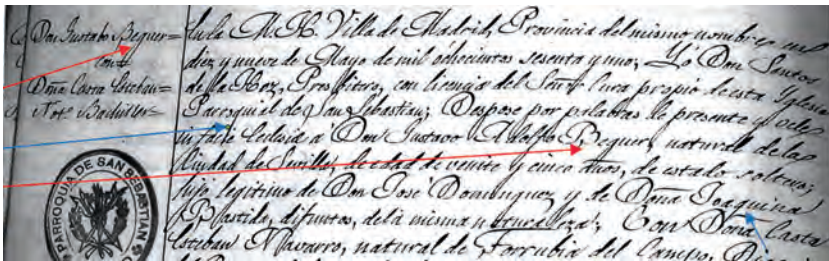 Don Gustabo Bequer=
con=
Doña Casta Esteban=
Notº Bachiller=
En la M. H. Villa de Madrid, Provincia del mismo nombre, en
diez y nueve de Mayo de mil ochocientos sesenta y uno; Yo Don Santos
de la Hoz, Presbitero, con licencia del Señor Cura propio de esta Yglesia
Parroquial de San Sebastian; Despose por palabras de presente y vele
in facie Eclesia a Don Gustavo Adolfo Bequer, natural de la
Ciudad de Sevilla, de edad de veinte y cinco años, de estado soltero;
hijo legitimo de Don José Dominguez y de Doña Joaquina
Bastida, difuntos, de la misma naturaleza; Con Doña Casta
Esteban Navarro, natural de Torrubia del Campo,
PARROQUIA DE SAN SEBASTIAN